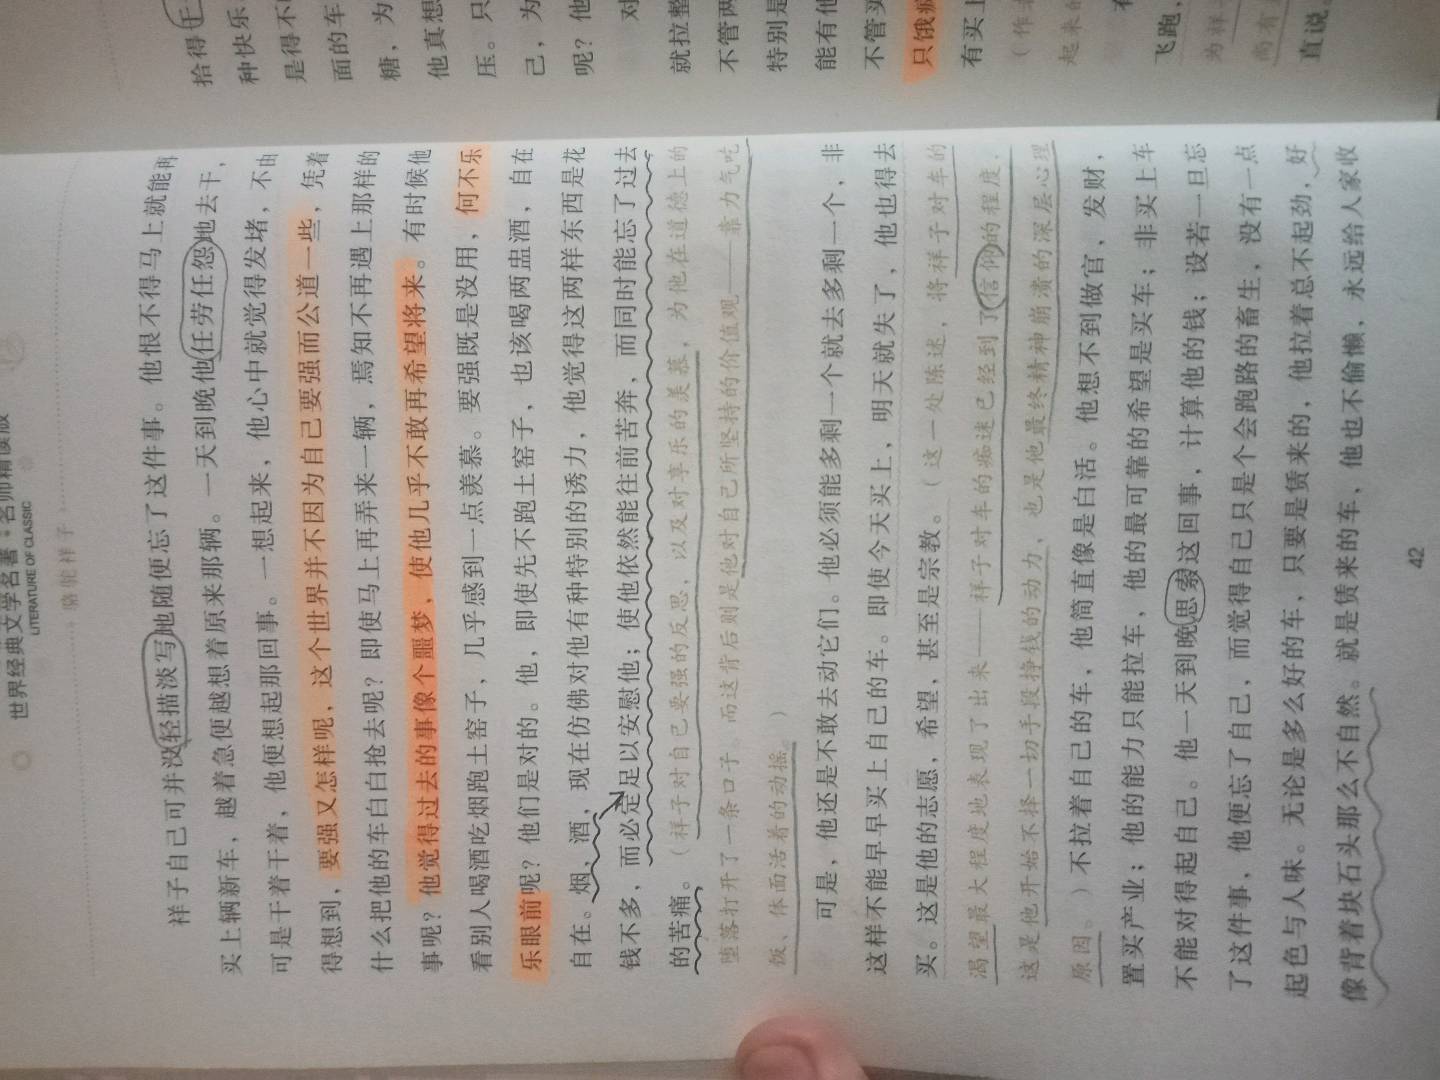 世界经典文学名著·名师精读版
LITERATURE OF CLASSIC
骆驼祥子
祥子自己可并没轻描淡写地随便忘了这件事。他恨不得马上就能再
买上辆新车，越着急便越想着原来那辆。一天到晚他任劳任怨地去干，
可是干着干着，他便想起那回事。一想起来，他心中就觉得发堵，不由
得想到，要强又怎样呢，这个世界并不因为自己要强而公道一些，凭着
什么把他的车白白抢去呢？即使马上再弄来一辆，焉知不再遇上那样的
事呢？他觉得过去的事像个噩梦，使他几乎不敢再希望将来。有时候他
看别人喝酒吃烟跑土窑子，几乎感到一点羡慕。要强既是没用，何不乐
乐眼前呢？他们是对的。他，即使先不跑土窑子，也该喝两盅酒，自在
自在。烟，酒，现在仿佛对他有种特别的诱力，他觉得这两样东西是花
钱不多，而必定足以安慰他；使他依然能往前苦奔，而同时能忘了过去
的苦痛。（祥子对自己要强的反思，以及对享乐的羡慕，为他在道德上的
堕落打开了一条口子。而这背后则是他对自己所坚持的价值观——靠力气吃
饭、体面活着的动摇。）
可是，他还是不敢去动它们。他必须能多剩一个就去多剩一个，非
这样不能早早买上自己的车。即使今天买上，明天就失了，他也得去
买。这是他的志愿，希望，甚至是宗教。（这一处陈述，将祥子对车的
渴望最大程度地表现了出来——祥子对车的痴迷已经到了信仰的程度，
这是他开始不择一切手段挣钱的动力，也是他最终精神崩溃的深层心理
原因。）不拉着自己的车，他简直像是白活。他想不到做官，发财，
置买产业；他的能力只能拉车，他的最可靠的希望是买车；非买上车
不能对得起自己。他一天到晚思索这回事，计算他的钱；设若一旦忘
了这件事，他便忘了自己，而觉得自己只是个会跑路的畜生，没有一点
起色与人味。无论是多么好的车，只要是赁来的，他拉着总不起劲，好
像背着块石头那么不自然。就是赁来的车，他也不偷懒，永远给人家收
42
拾得
种快乐
是得不
面的车
糖，为
他真想
压。只
己，为
呢？他
对
就拉整
不管两
特别是
能有他
不管买
只饿疯
有买上
（作者
起来的
有
飞跑，
为祥
尚有
直说。